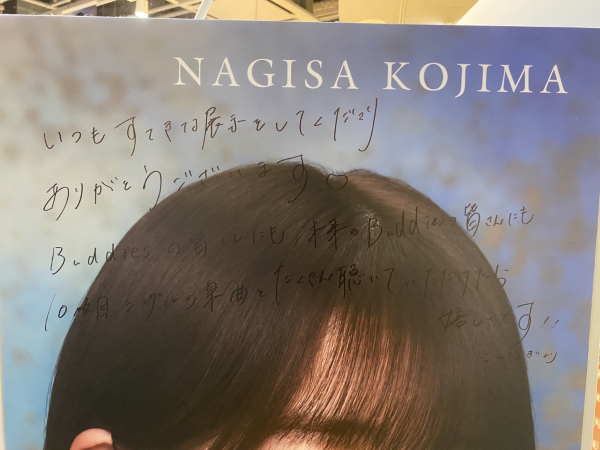 NAGISA KOJIMA
いつもすてきな展示をしてくださり
ありがとうございます♡
Buddiesの皆さんにも、未来のBuddiesの皆さんにも
10枚目シングルの楽曲をたくさん聴いていただけたら
嬉しいです!!